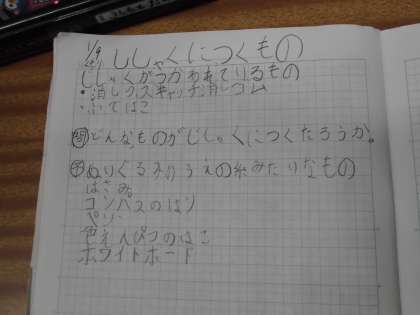 1/9 じしゃくにつくもの①
じしゃくがつかわれているもの
・消しゴスキャッチ消しゴム
・ふではこ
問 どんなものがじしゃくにつくだろうか。
予 ぬいぐるみのうえの糸みたいなもの
はさみ
コンパスのはり
ペン
色えんぴつのはこ
ホワイトボード